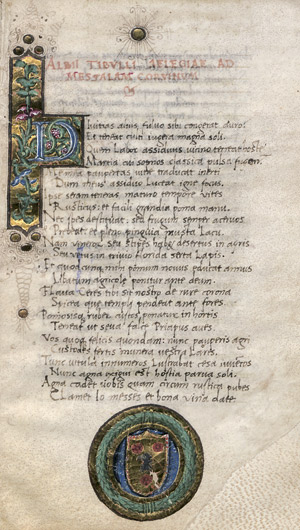 ALBII TIBULLI AELEGIAE AD
MESSALAM CORVINUM
Divitias alius fulvo sibi congerat auro
Et teneat culti iugera magna soli
Quem Labor assiduus vicino terreat hoste
Martia cui somnos classica pulsa fugent
Me mea paupertas vite traducat inerti
Dum meus assiduo luceat igne focus
Ipse seram teneras maturo tempore vites
Rusticus et facili grandia poma manu
Nec spes destituat, seu frugum semper acervos
Prebeat et pleno pinguia musta Lacu
Nam veneror seu stipes habet desertus in agris
Seu vetus in trivio florida serta Lapis
Et quodcunque mihi pomum novus educat annus
Libatum agricole ponitur ante deum
Flava Ceres tibi sit nostro de rure corona
Spicea que templi pendeat ante fores
Pomosisque ruber custos ponatur in hortis
Terreat ut seva falce Priapus aves
Vos quoque felicis quondam: nunc pauperis agri
Custodes fertis munera vestra Lares
Tunc vitula innumeros Lustrabat cesa iuvencos
Nunc agna exigui est hostia parva soli
Agna cadet vobis quam circum rustica pubes
Clamet Io messes et bona vina date